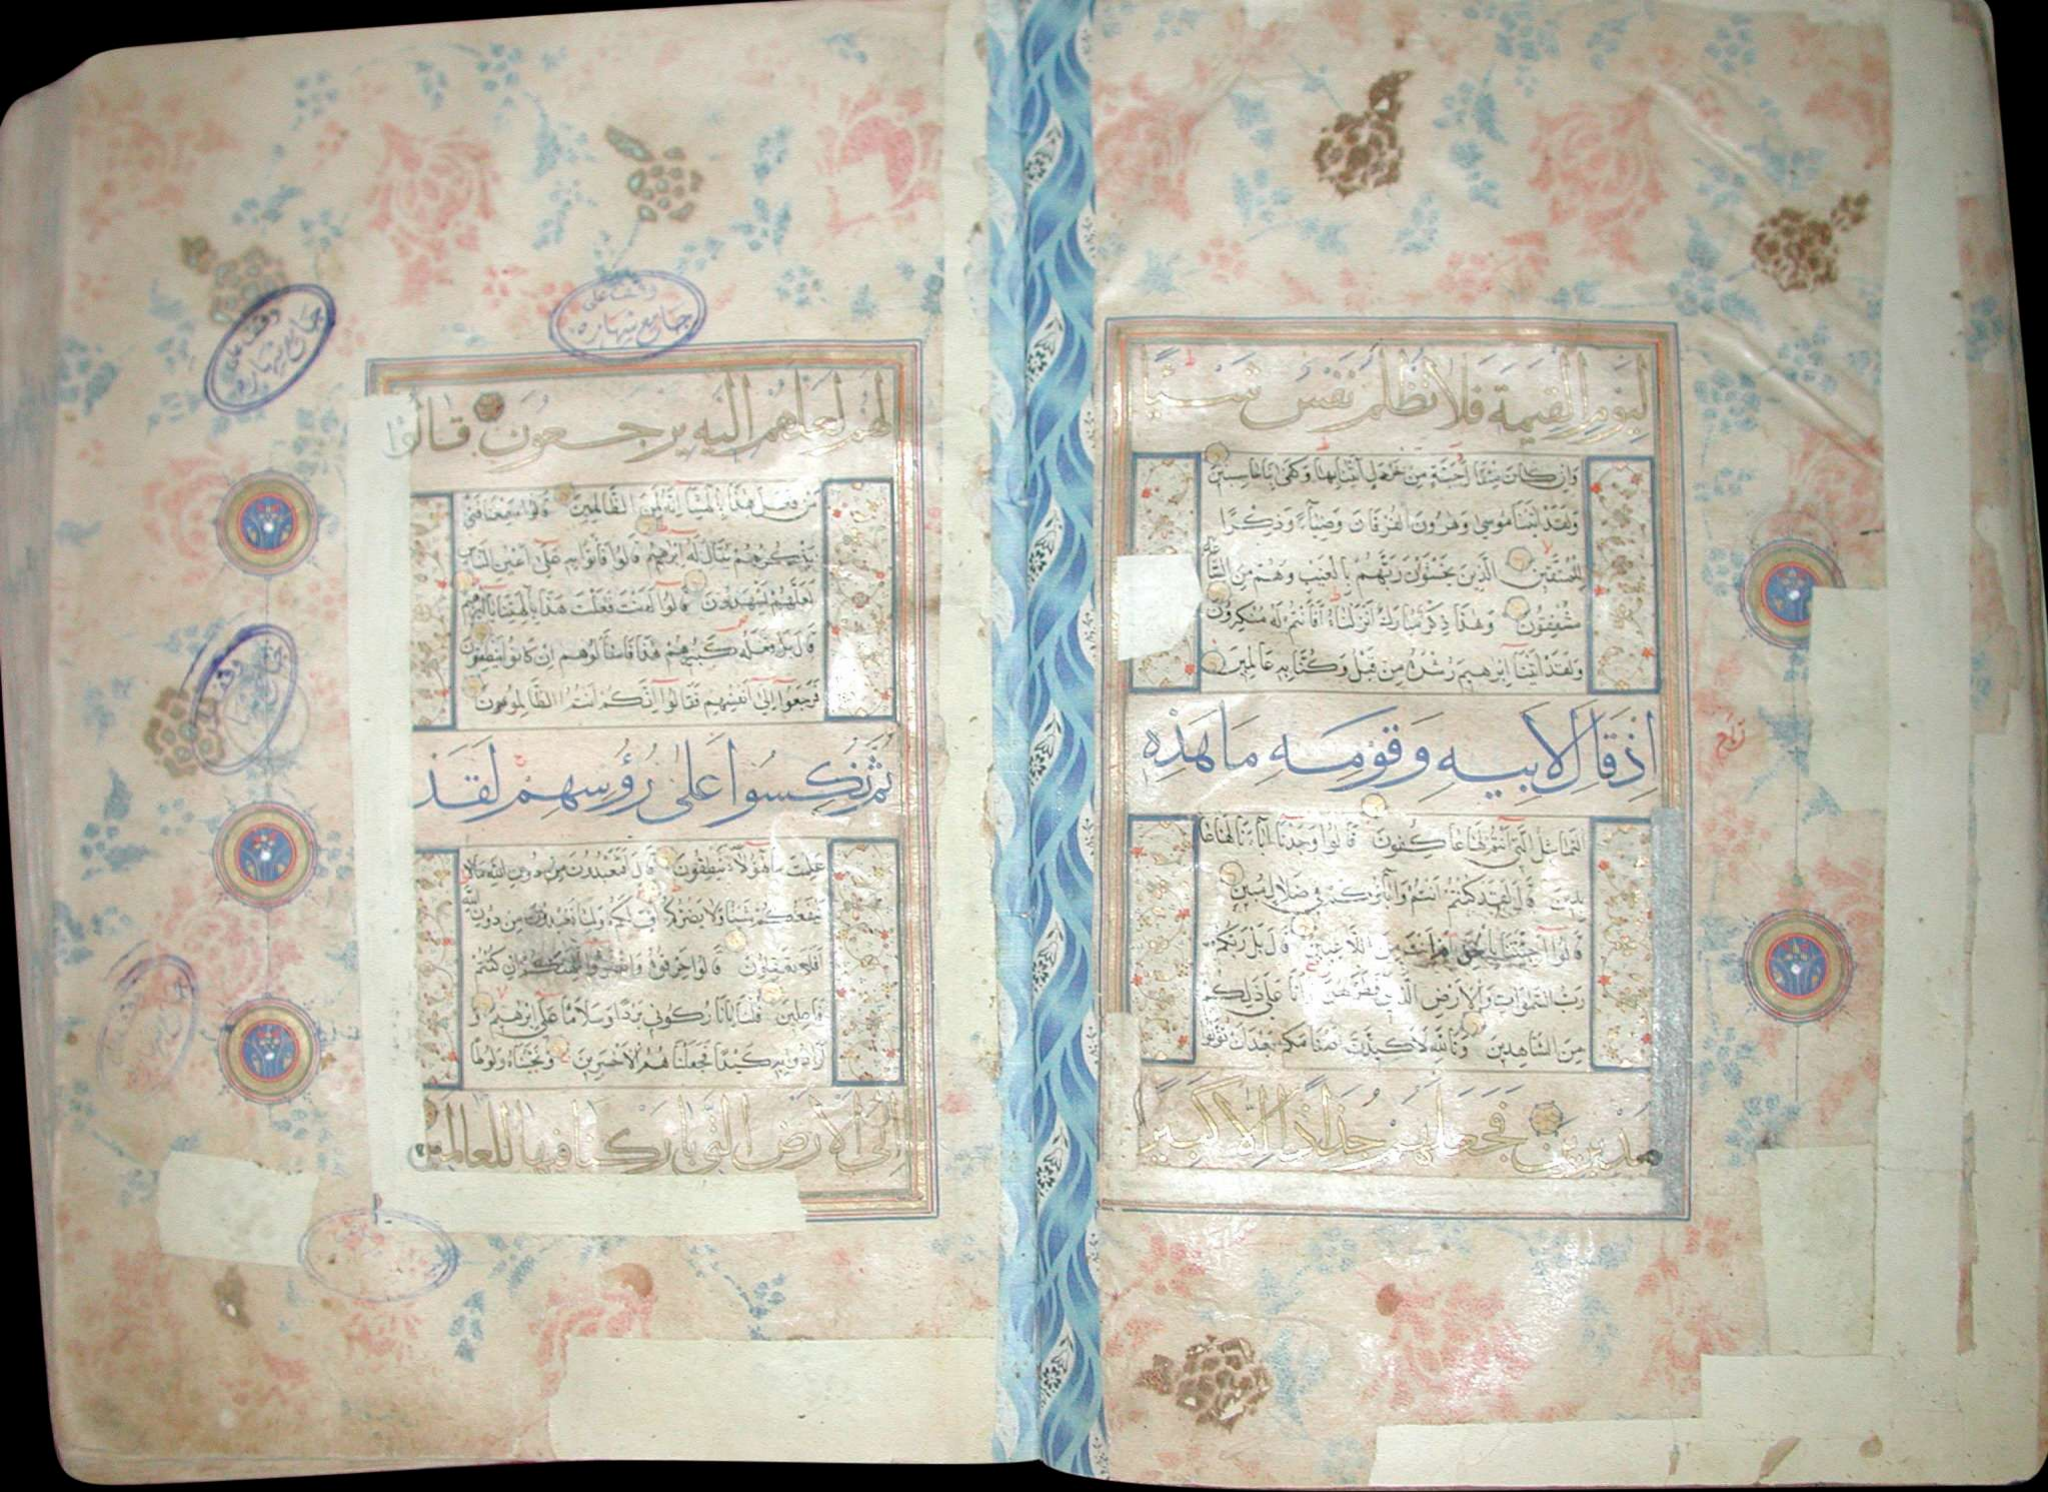 ليوم القيمة فلا تظلم نفس شيئا
وان كان مثقال حبة من خردل اتينا بها وكفى بنا حاسبين
ولقد اتينا موسى وهرون الفرقان وضياء وذكرا
للمتقين الذين يخشون ربهم بالغيب وهم من الساعة
مشفقون وهذا ذكر مبارك انزلناه افانتم له منكرون
ولقد اتينا ابرهيم رشده من قبل وكنا به عالمين
اذ قال لابيه وقومه ما هذه
التماثيل التي انتم لها عاكفون قالوا وجدنا اباءنا لها عا
بدين قال لقد كنتم انتم واباؤكم في ضلال مبين
قالوا اجئتنا بالحق ام انت من اللاعبين قال بل ربكم
رب السموات والارض الذي فطرهن وانا على ذلكم
من الشاهدين وتالله لاكيدن اصنامكم بعد ان تولوا
مدبرين فجعلهم جذاذا الا كبيرا
لهم لعلهم اليه يرجعون قالوا
من فعل هذا بالهتنا انه لمن الظالمين قالوا سمعنا فتى
يذكرهم يقال له ابرهيم قالوا فاتوا به على اعين الناس
لعلهم يشهدون قالوا اانت فعلت هذا بالهتنا يا ابرهيم
قال بل فعله كبيرهم هذا فاسألوهم ان كانوا ينطقون
فرجعوا الى انفسهم فقالوا انكم انتم الظالمون
ثم نكسوا على رؤسهم لقد
علمت ما هؤلاء ينطقون قال افتعبدون من دون الله ما لا
ينفعكم شيئا ولا يضركم اف لكم ولما تعبدون من دون الله
افلا تعقلون قالوا حرقوه وانصروا الهتكم ان كنتم
فاعلين قلنا يا نار كوني بردا وسلاما على ابرهيم و
ارادوا به كيدا فجعلناهم الاخسرين ونجيناه ولوطا
الى الارض التي باركنا فيها للعالمين
وقف على
جامع شهاره
وقف على
جامع شهاره